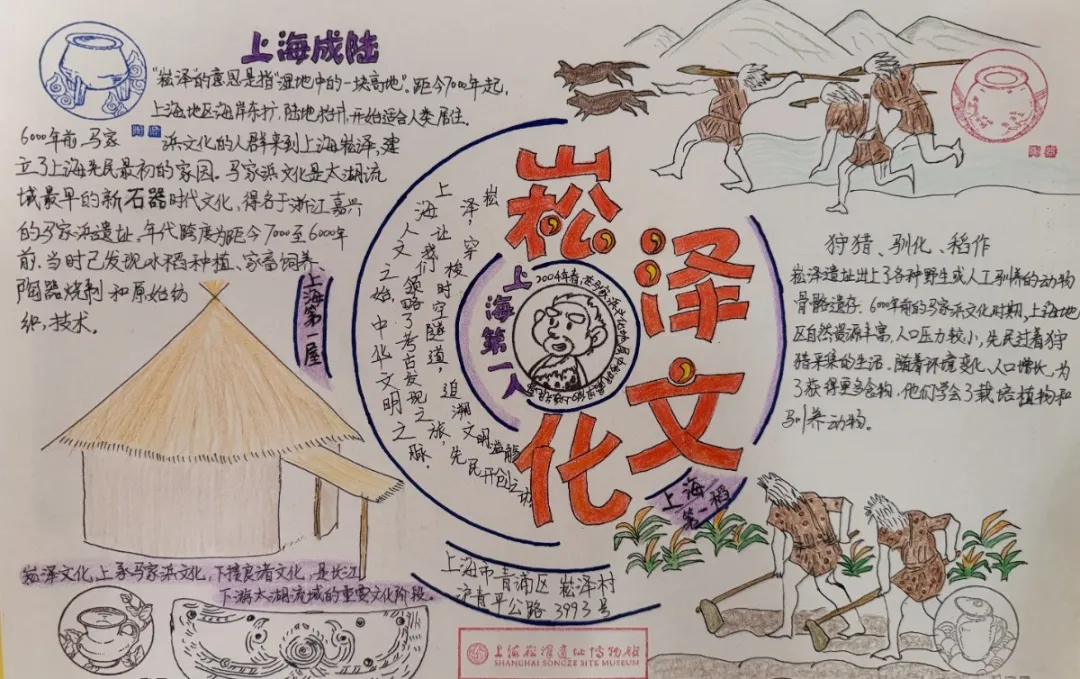 上海成陆
"崧泽"的意思是指"湿地中的一块高地"。距今7000年起,
上海地区海岸东扩,陆地抬升,开始适合人类居住。
6000年前,马家
浜文化的人群来到上海崧泽,建
立了上海先民最初的家园。马家浜文化是太湖流
域最早的新石器时代文化,得名于浙江嘉兴
的马家浜遗址,年代跨度为距今7000至6000年
前。当时已发现水稻种植、家畜饲养、
陶器烧制和原始纺
织,技术。
上海第一屋
崧泽,穿梭时空隧道,追溯文明
先民开创之
上海让我们领略了考古发现之旅,
人文之始,中华文明之脉。
崧泽文化
上海第一人
上海第一稻
狩猎、驯化、稻作
崧泽遗址出土了各种野生或人工驯养的动物
骨骼遗存。6000年前的马家浜文化时期,上海地
区自然资源丰富,人口压力较小,先民过着狩
猎采集的生活。随着环境变化,人口增长,为
了获得更多食物,他们学会了栽培植物和
驯养动物。
崧泽文化,上承马家浜文化,下接良渚文化,是长江
下游太湖流域的重要文化阶段。
上海市青浦区崧泽村
沪青平公路3993号
上海崧泽遗址博物馆
SHANGHAI SONGZE SITE MUSEUM